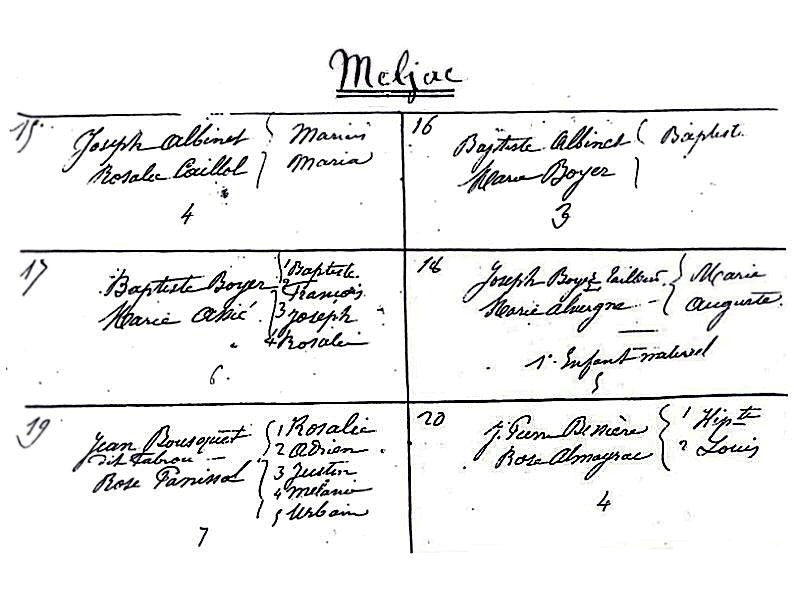 Meljac
15
Joseph Albinet { Marius
Rosalie Caillol } Maria
4
16
Baptiste Albinet { Baptiste
Marie Boyer }
3
17
Baptiste Boyer { 1 Baptiste
2 François
Marie Assié } 3 Joseph
4 Rosalie
6
18
Joseph Boyer Tailleur { Marie
Marie Alvergne - { Auguste
1 Enfant naturel
5
19
Jean Bousquet { 1 Rosalie
dit Tabrou - 2 Adrien
Rose Panissol 3 Justin
4 Mélanie
5 Urbain
7
20
J. Pierre Bessière { 1 Hipte
Rose Almayrac { 2 Louis
4